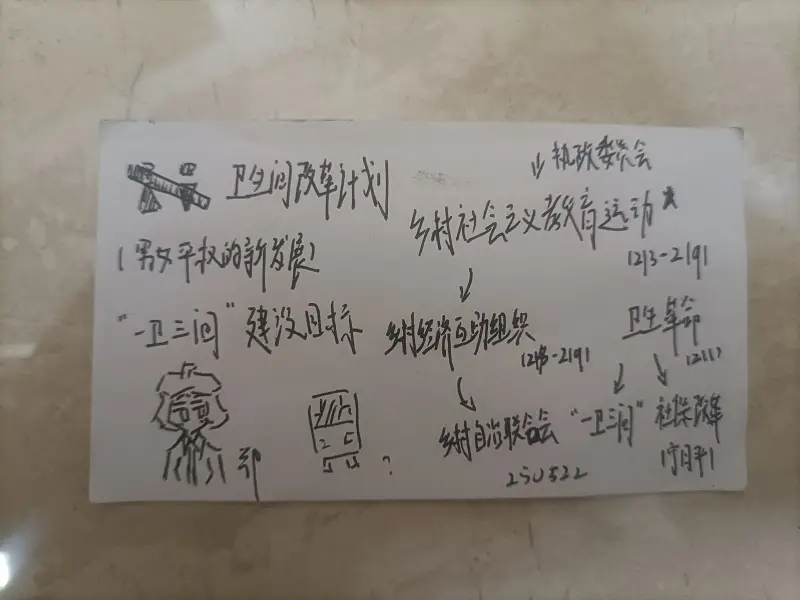 卫生间改革计划
(男女平权的新发展)
"一卫三间"建设目标
郑
?
⇓ 执政委员会
乡村社会主义教育运动*
1213-2191
↓
乡村经济互助组织
1218-2191
↓
乡村自治联合会
250522
卫生革命
(2111)
↓ ↘
"一卫三间" 社保改革